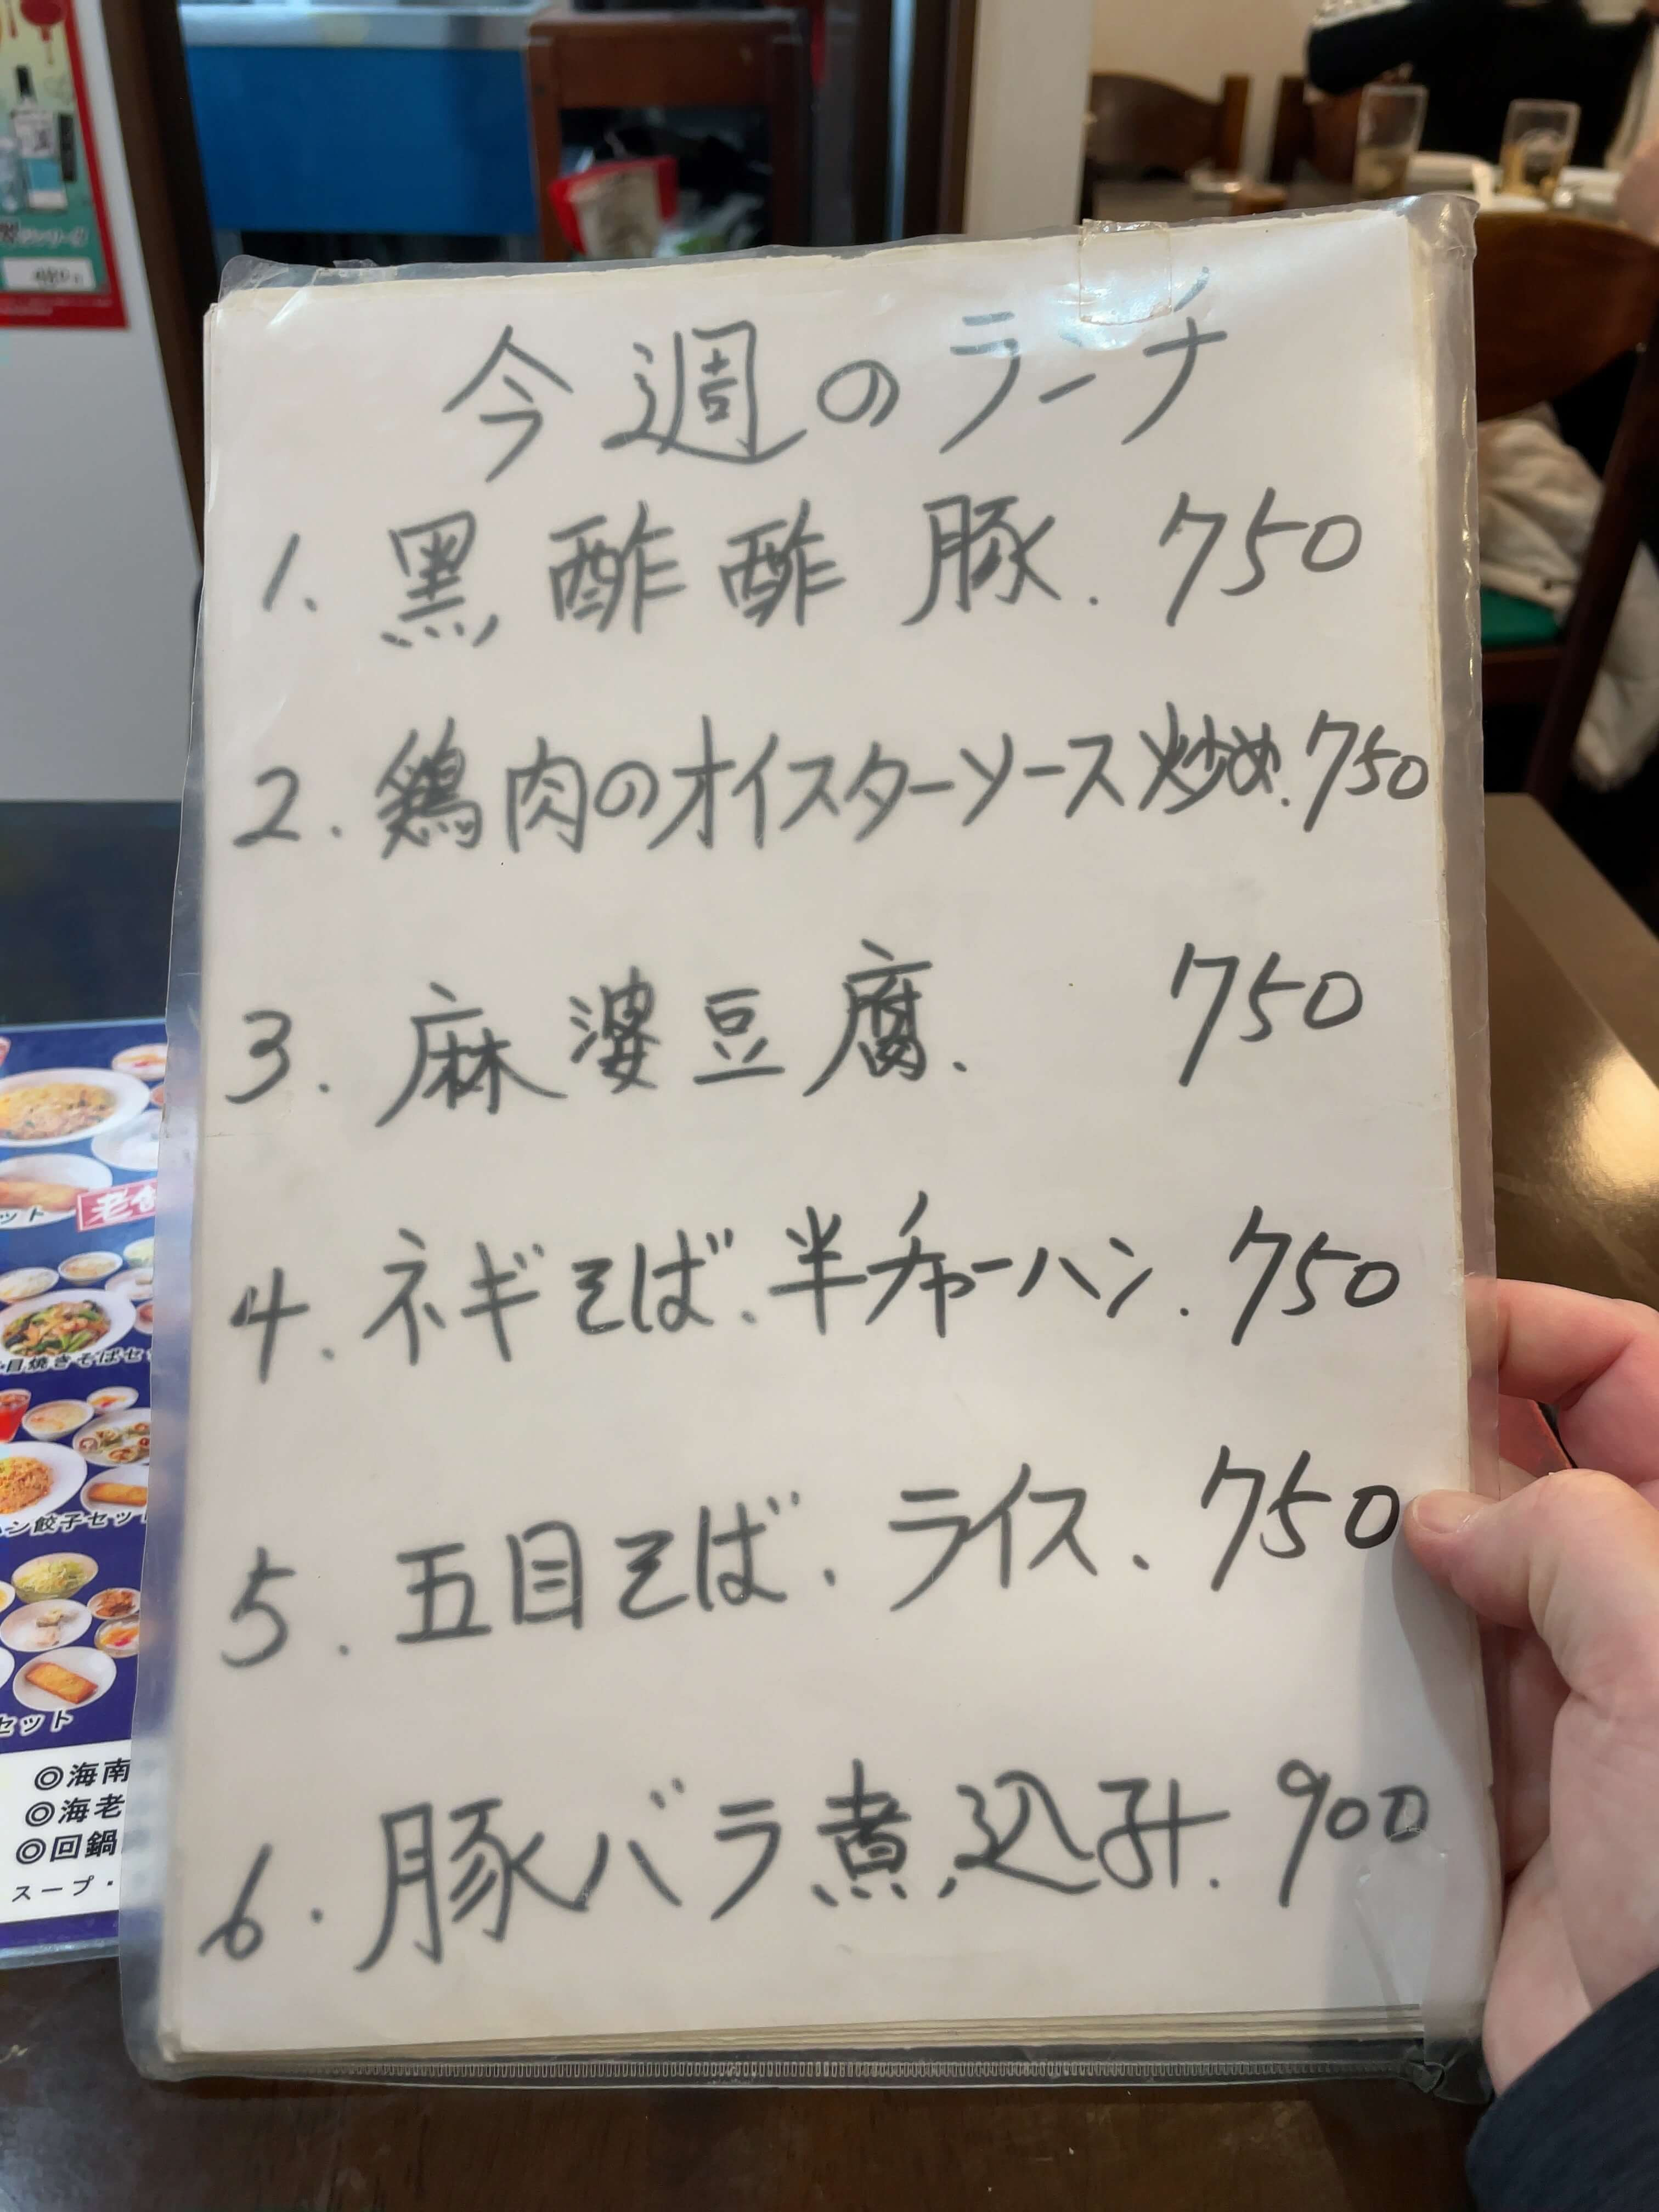 今週のランチ
1. 黒酢酢豚. 750
2. 鶏肉のオイスターソース炒め. 750
3. 麻婆豆腐. 750
4. ネギそば、半チャーハン. 750
5. 五目そば、ライス、750
6. 豚バラ煮込み. 900
ット
目焼きそばセ
ン餃子セット
セット
◎海南
◎海老
◎回鍋
スープ・